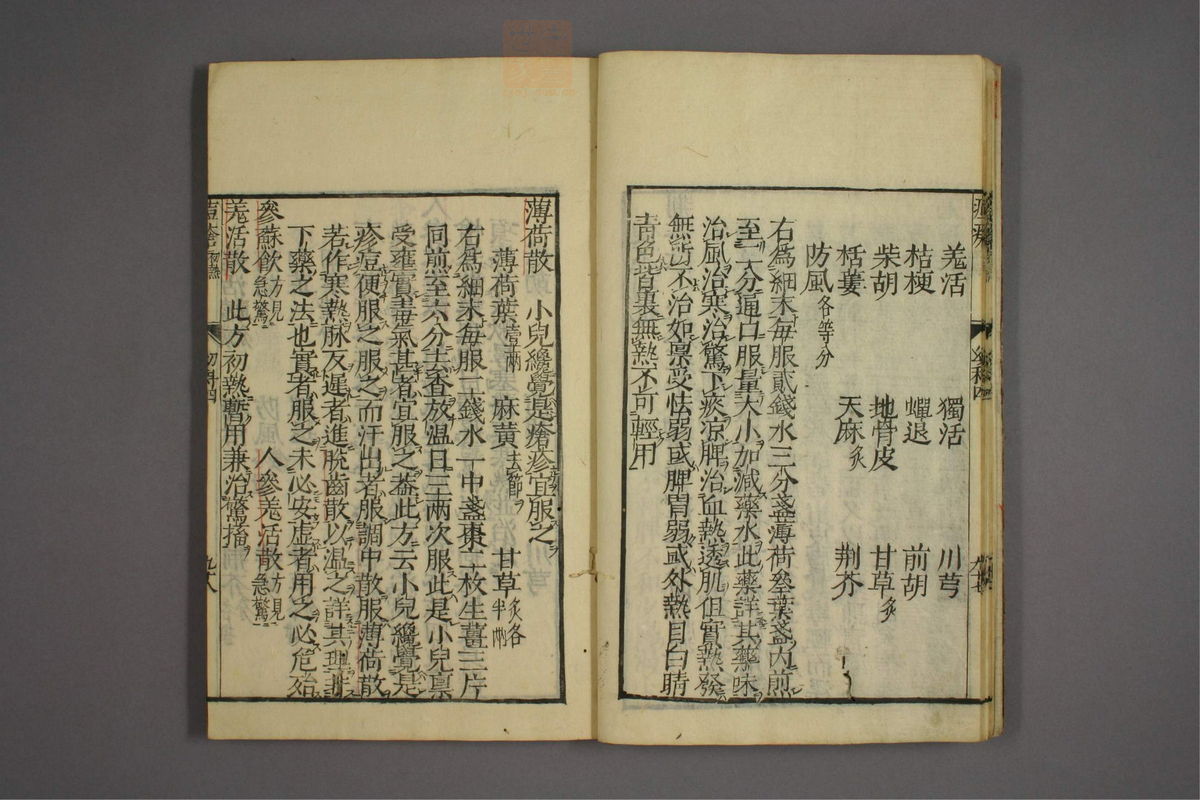 羌活 獨活 川芎
桔梗 蟬退 前胡
柴胡 地骨皮 甘草炙
栝蔞 天麻炙 荆芥
防風各等分
右爲細末每服貳錢水三分盞薄荷叄葉盞内煎
至二分通口服量大小加減藥水此藥詳其藥味
治風治寒治驚下痰凉脾治血熱透肌但實熱發
無所不治如禀受怯弱或脾胃弱或外熱目白睛
青色皆裏無熱不可輕用
薄荷散 小兒纔覺是瘡疹宜服之
薄荷葉壹兩 麻黄去節 甘草炙各半兩
右爲細末每服二錢水一中盞棗二枚生薑三片
同煎至六分去査放温日三兩次服此是小兒禀
受壅實毒氣甚者宜服之葢此方云小兒纔覺是
疹痘便服之服之而汗出者服調中散服薄荷散
若作寒熱脉反遲者進脱齒散以温之詳其理非
下藥之法也實者服之未必安虚者用之必危殆
參蘇飲方見急驚 人參羌活散方見急驚
羌活散 此方初熱暫用兼治驚搐